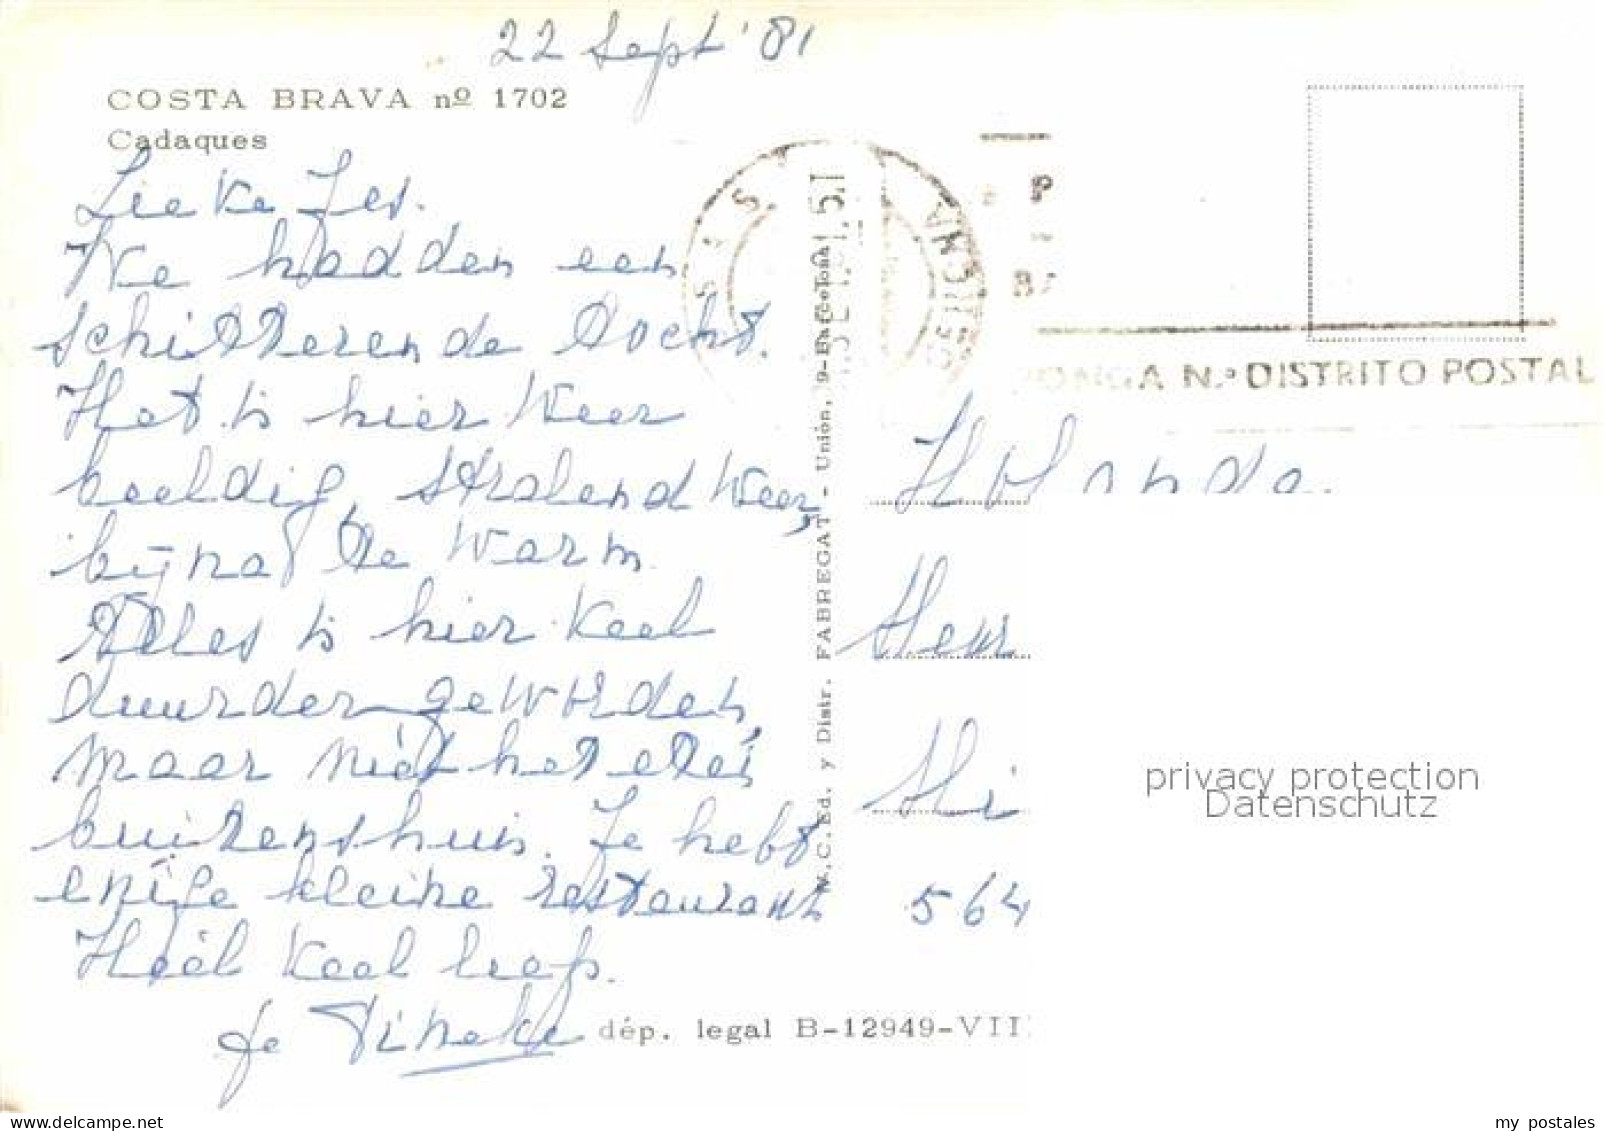 22 Sept '81
COSTA BRAVA nº 1702
Cadaques
Lieve Jes.
We hadden een
schitterende tocht.
Het is hier weer
beeldig, stralend weer,
bijna te warm.
Alles is hier veel
duurder geworden,
maar niet het eten
buitenshuis. Je hebt
enige kleine restaurants
Heel veel liefs.
Je Tineke
M.C. Ed. y Distr. FABREGAT - Unión, 9-Barcelona
dép. legal B-12949-VII
ONGA N.º DISTRITO POSTAL
Holanda.
Heur
Hi
564
privacy protection
Datenschutz
my postales